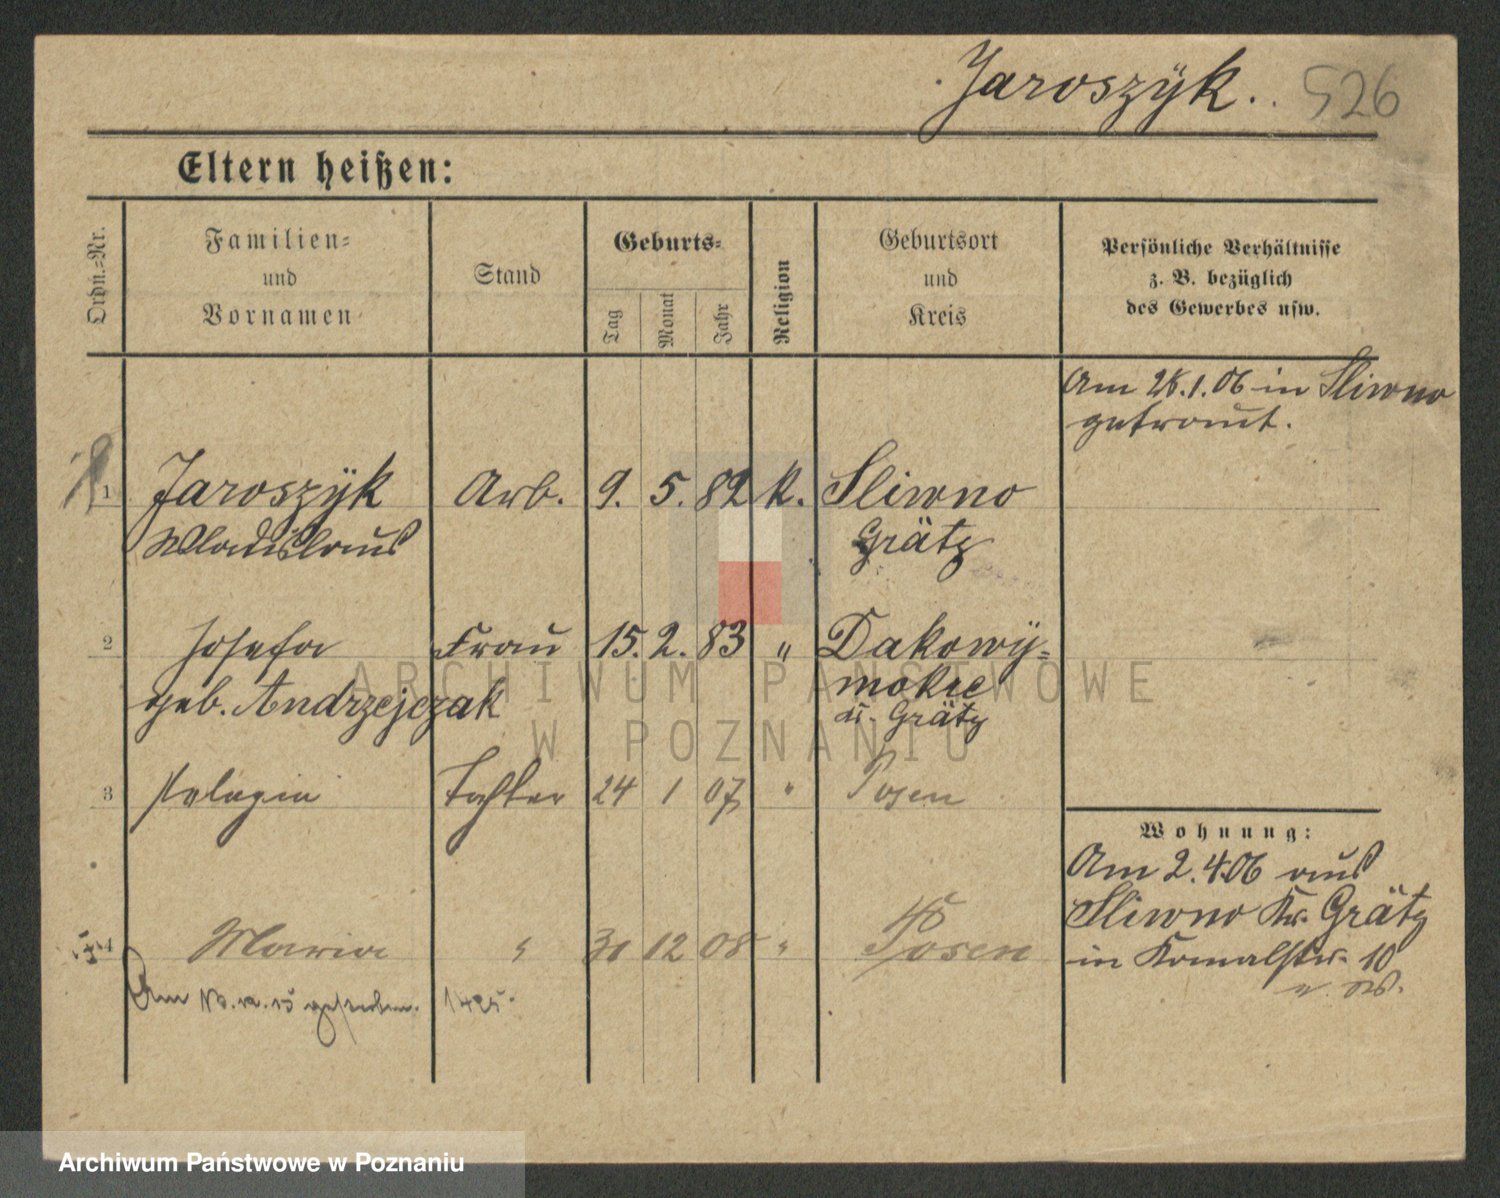 Jaroszÿk.
526
Eltern heißen:
Ordn.=Nr.
Familien=
und
Vornamen
Stand
Geburts=
Tag
Monat
Jahr
Religion
Geburtsort
und
Kreis
Persönliche Verhältnisse
z. B. bezüglich
des Gewerbes usw.
Am .1.06 in Sliwno
getraut.
1 Jaroszÿk Arb. 9. 5. 82 k. Sliwno
Wladislaus Grätz
2 Josefa Frau 15. 2. 83 " Dakowÿ=
geb. Andrzejczak mokre
Grätz
3 Pelagia Tochter 24 1 07 " Posen
Wohnung:
Am 2.4.06 aus
Sliwno Kr. Grätz
in 10
4 Maria " 30 12 08 " Posen
Am gestorben.
ARCHIWUM PAŃSTWOWE
W POZNANIU
Archiwum Państwowe w Poznaniu